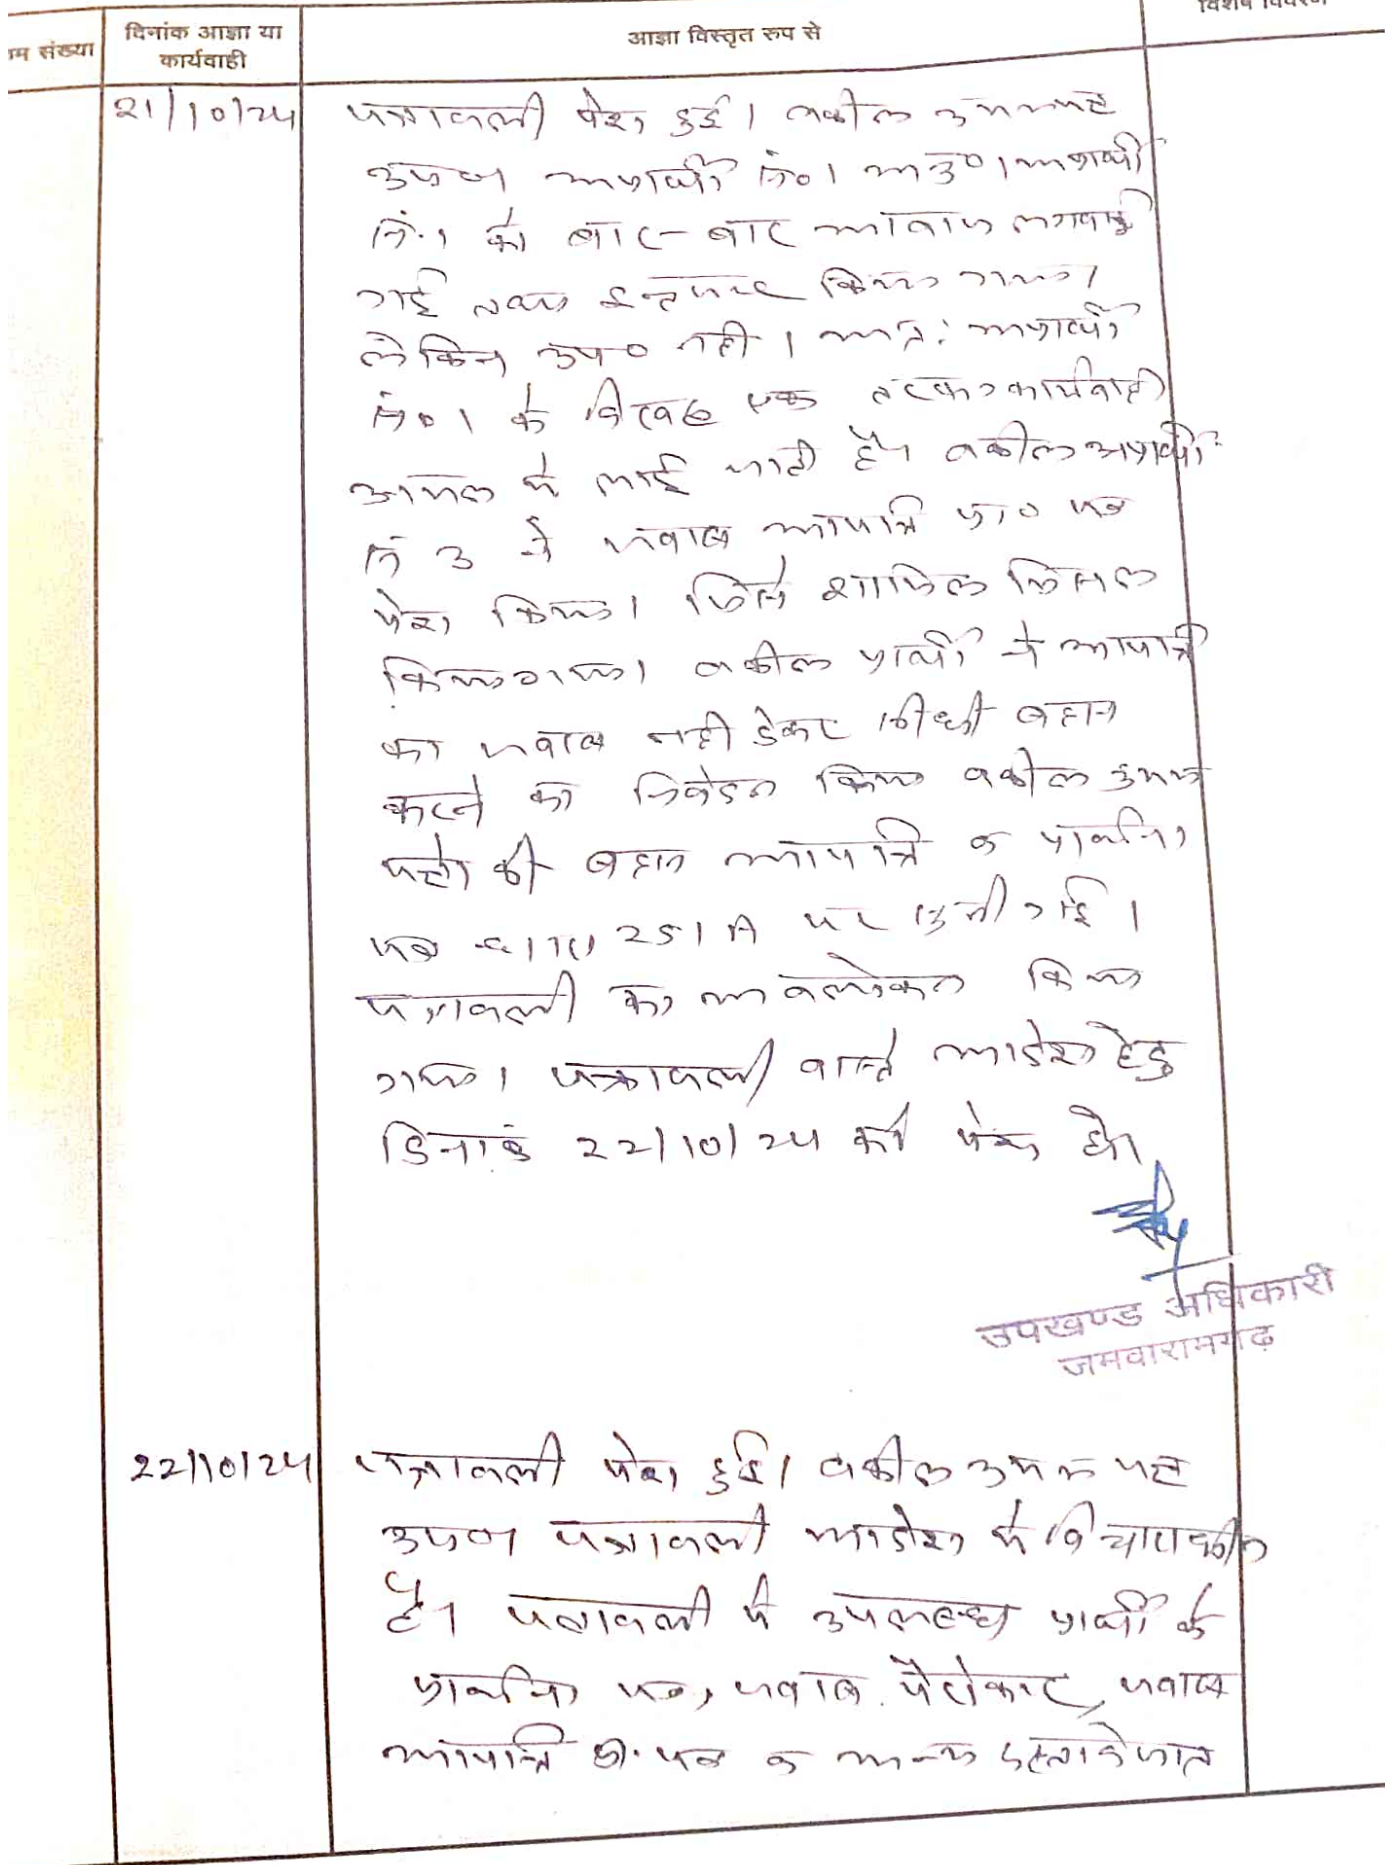 विशेष विवरण
दिनांक आज्ञा या
कार्यवाही
आज्ञा विस्तृत रुप से
म संख्या
21/10/24
पत्रावली पेश हुई। वकील उभयपक्ष
उप० अप्रार्थी सं० 1 अनु०। अप्रार्थी
सं. 1 को बार-बार आवाज लगवाई
गई तथा इन्तजार किया गया।
लेकिन उप० नही। अत: अप्रार्थी
सं० 1 के विरुद्ध एक तरफा कार्यवाही
अमल मे लाई जाती है। वकील अप्रार्थी
सं 3 ने जवाब आपत्ति प्रा० पत्र
पेश किया। जिसे शामिल मिसल
किया गया। वकील प्रार्थी ने आपत्ति
का जवाब नही देकर सीधी बहस
करने का निवेदन किया वकील उभय
पक्षो की बहस आपत्ति व प्रार्थना
पत्र धारा 251A पर सुनी गई।
पत्रावली का अवलोकन किया
गया। पत्रावली वास्ते आदेश हेतु
दिनांक 22/10/24 को पेश हो।
उपखण्ड अधिकारी
जमवारामगढ़
22/10/24
पत्रावली पेश हुई। वकील उभय पक्ष
उप० पत्रावली आदेश मे विचाराधीन
है। पत्रावली मे उपलब्ध प्रार्थी के
प्रार्थना पत्र, जवाब, जवाब
आपत्ति प्रा. पत्र व अन्य दस्तावेजात